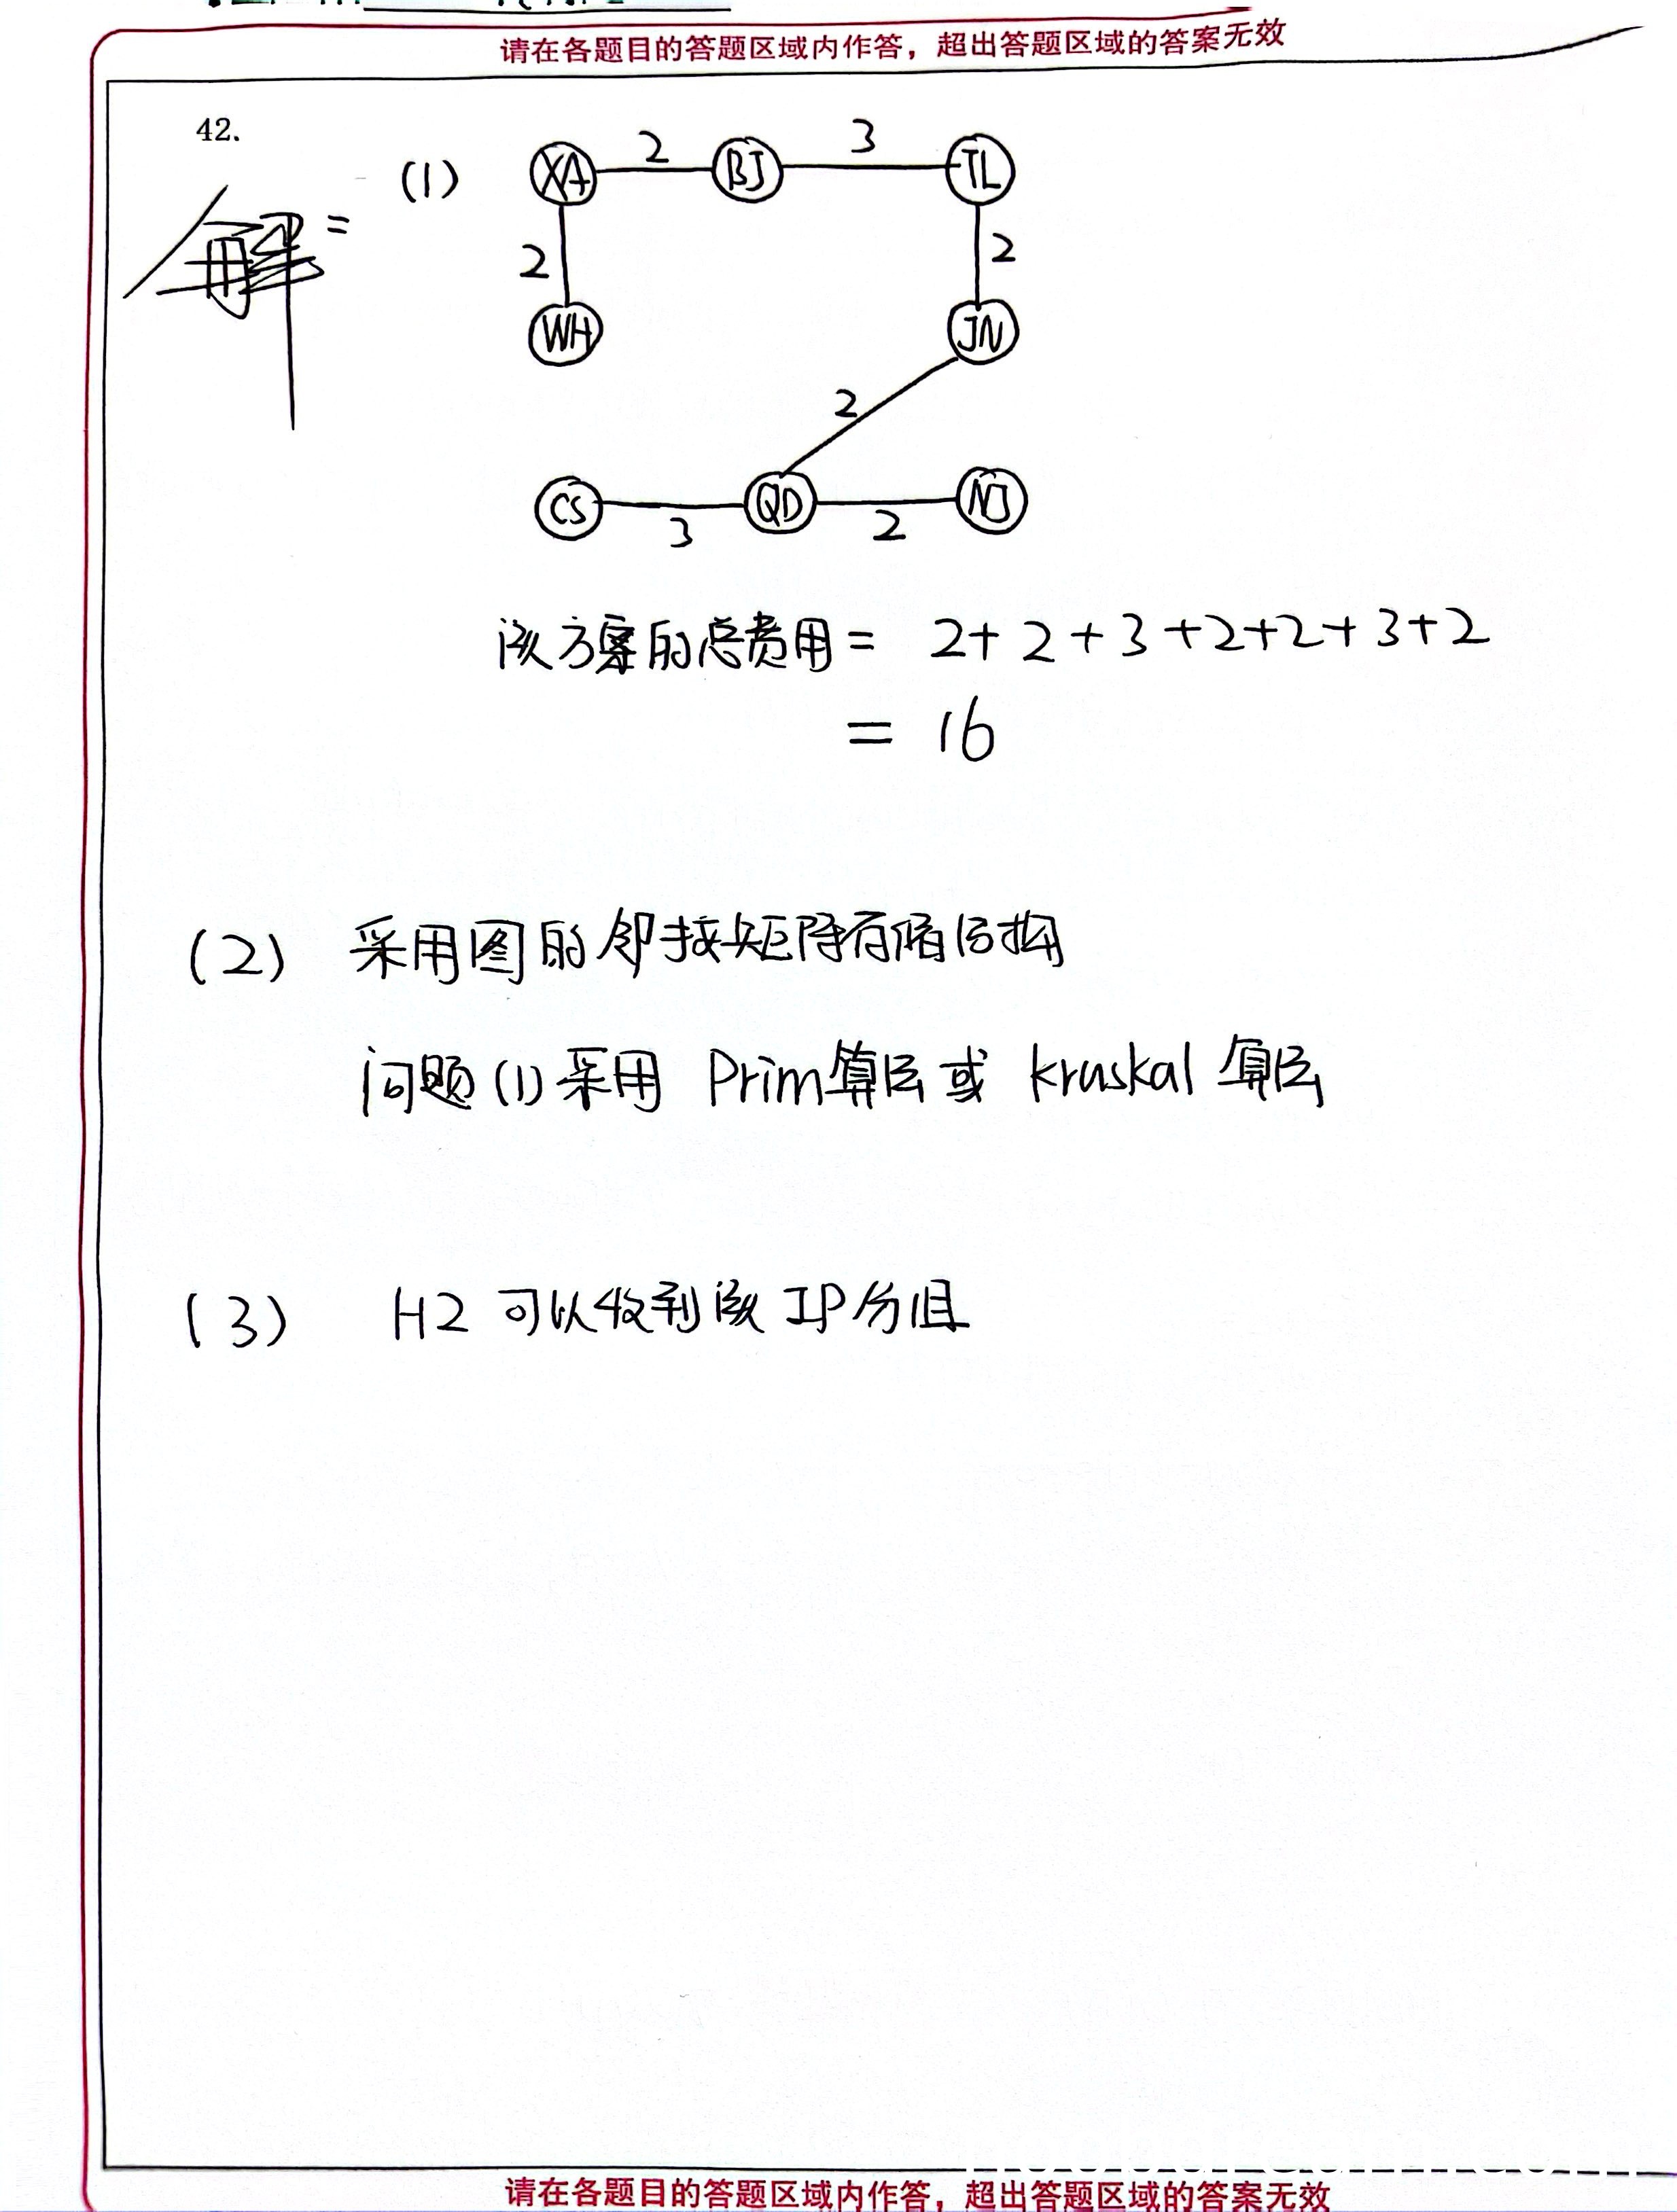 请在各题目的答题区域内作答，超出答题区域的答案无效
42.
解：
(1)
XA 2 BJ 3 TL
2 2
WH JN
2
CS 3 QD 2 NJ
该方案的总费用 = 2+2+3+2+2+3+2
= 16
(2) 采用图的邻接矩阵存储结构
问题(1)采用 Prim算法或 kruskal 算法
(3) H2 可以收到该 IP分组
请在各题目的答题区域内作答，超出答题区域的答案无效